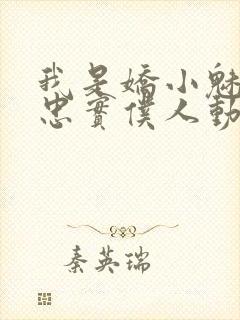 我是嬌小魅
忠實僕人動
秦英瑞